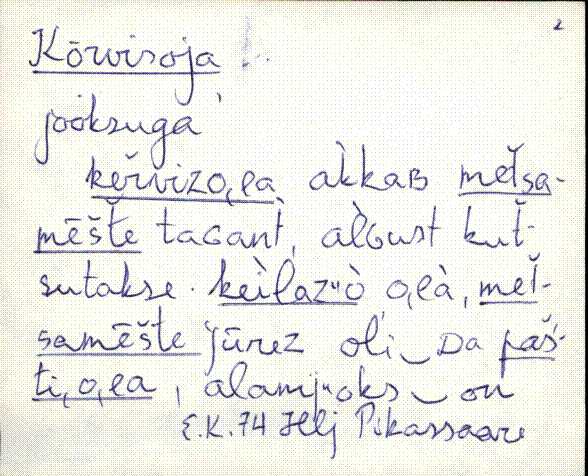 2
Kõrvisoja
jooksuga
kèrvizo͔ea àkkaʙ met̆sa-
mēšte taɢant̀, àlɢust kut̆-
sutakse. keìlaz͔ò o͔eà, met̆-
samēšte jūrez oli ᴅa pas̆-
ti͔o͔ea, alamjoks on
E.K. 74 Helj Pikassaar